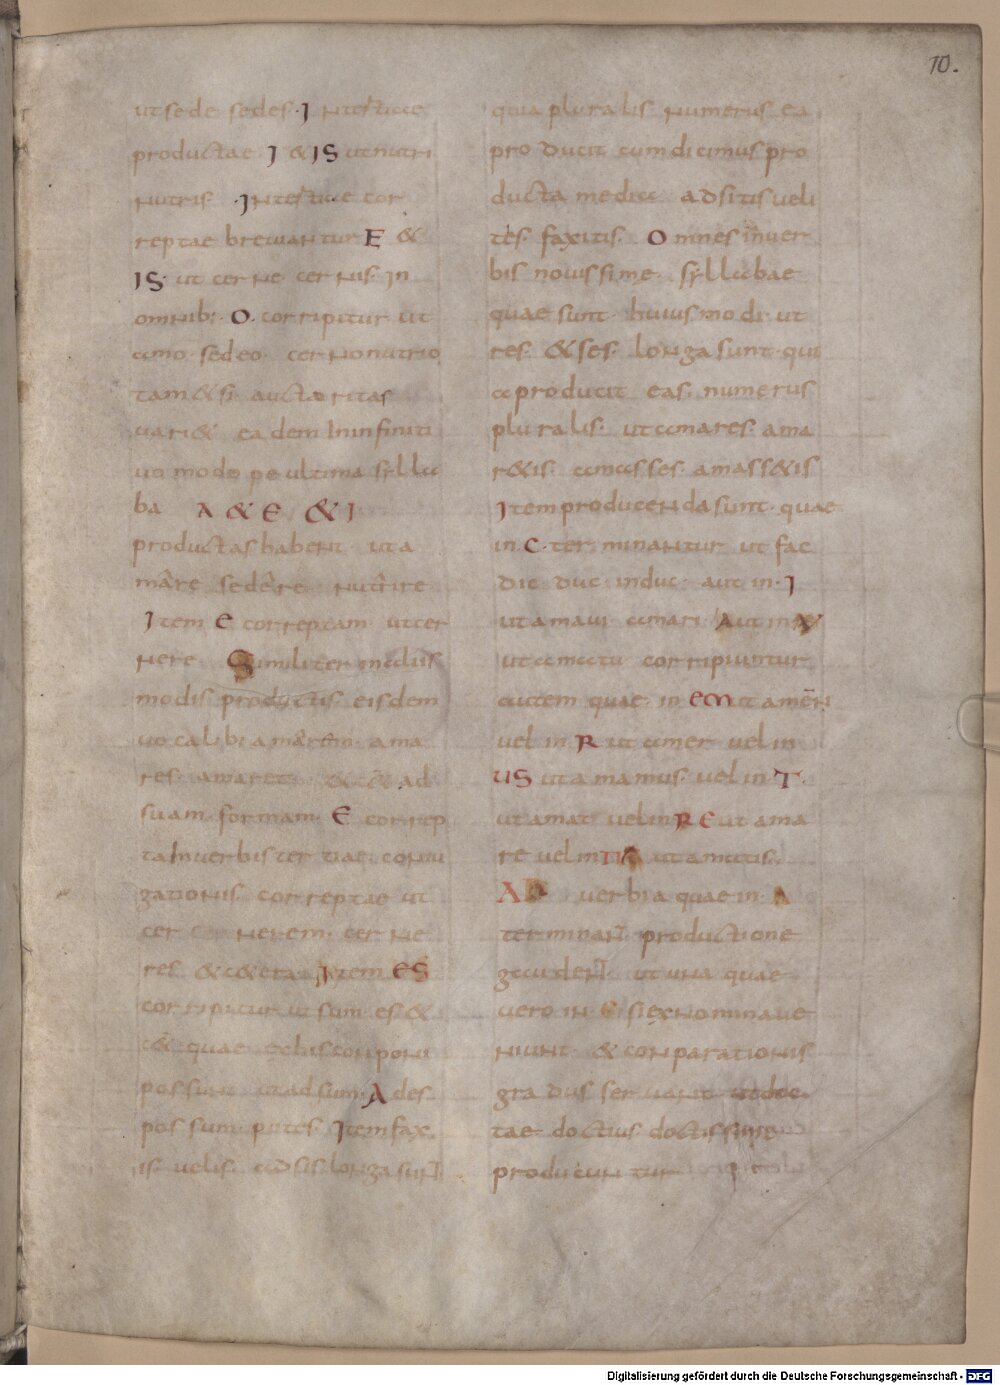 10.
ut sede sedes. In tertiae
productae I & IS ut nutri
nutris. In tertiae cor
reptae breviantur E &
IS. ut cerne cernis. in
omnib; O. corripitur ut
amo sedeo cerno nutrio
tam&si auctoritas
vari& eadem In infiniti
vo modo peultima sylla
ba A & E & I
productas habent ut a
mâre sedêre nutrire
Item E correptam ut cer
nere Similiter in aliis
modis productis eisdem
vocalib; amarem ama
res amaret & c&̄ ad
suam formam. E correp
ta In verbis tertiae coniu
gationis correptae ut
cer nerem cerne
res &c&era Item ES
corripitur ut sum es &
c&̄ quae ex his conponi
possunt ut adsum. Ades
possum potes. Item fax
is velis adsis longa sunt
quia pluralis numerus ea
producit cum dicimus pro
ducta media adsitis veli
tis. faxitis. Omnes in ver
bis novissime syllabae
quae sunt huiusmodi ut
res. & ses longa sunt qui
a producit eas numerus
pluralis. ut amares ama
r&is. amasses amass&is
Item producenda sunt quae
in C. terminantur ut fac
dic duc induc aut in I
ut amavi amari Aut in
ut amatu corripiuntur
autem quae in EM ut amem
vel in R ut amer vel in
US ut amamus vel in T.
ut amat vel in RE ut ama
re vel in ut amatis.
AD verbia quae in A
terminant productione
gaudent ut una quae
vero in E si ex nomina ve
niunt & conparationis
gradus servant ut doc
tae doctius doctissime
producuntur
Digitalisierung gefördert durch die Deutsche Forschungsgemeinschaft - DFG